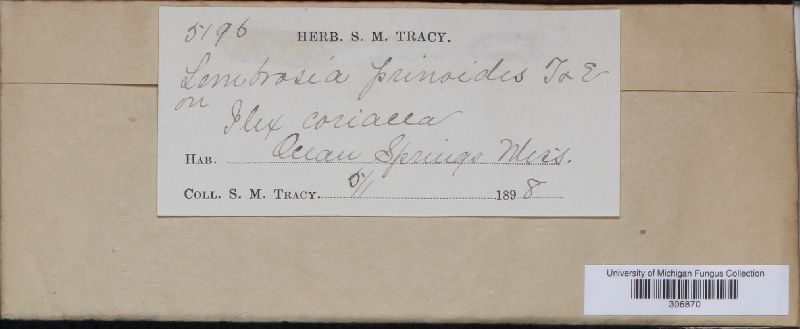 5196 HERB. S. M. TRACY.
Lembrosia prinoides T & E
on Ilex coriacea
HAB. Ocean Springs Miss.
COLL. S. M. TRACY. 5/1 1898
University of Michigan Fungus Collection
306870